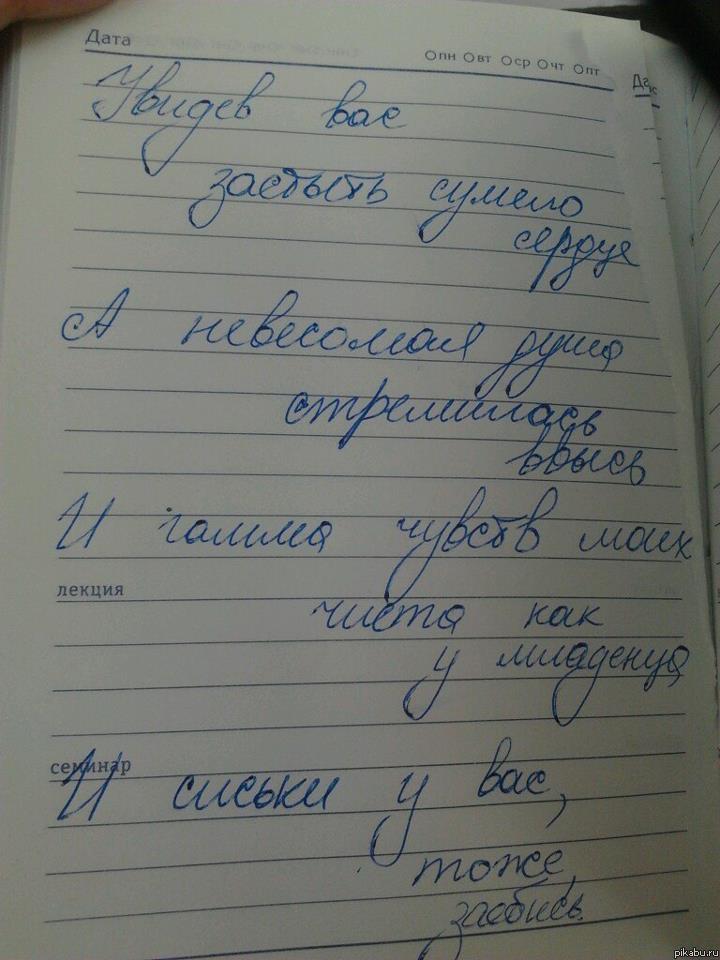 Дата
Опн Овт Оср Очт Опт
Да
Увидев вас
застыть сумело
сердце
А невесомая душа
стремилась
ввысь
И гамма чувств моих
лекция
чиста как
у младенца
семинар
И сиськи у вас,
тоже,
заебись.
pikabu.ru